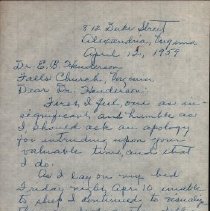 312 Duke Street
Alexandria, Virginia
April 12, 1959
Dr. E. B. Henderson
Falls Church, Virginia
Dear Dr. Henderson:
First, I feel, one as in-
significant, and humble as
I should ask an apology
for intruding upon your
valuable time, and that
I do.
As I lay on my bed
Friday night, Apr. 10 unable
to sleep I continued to